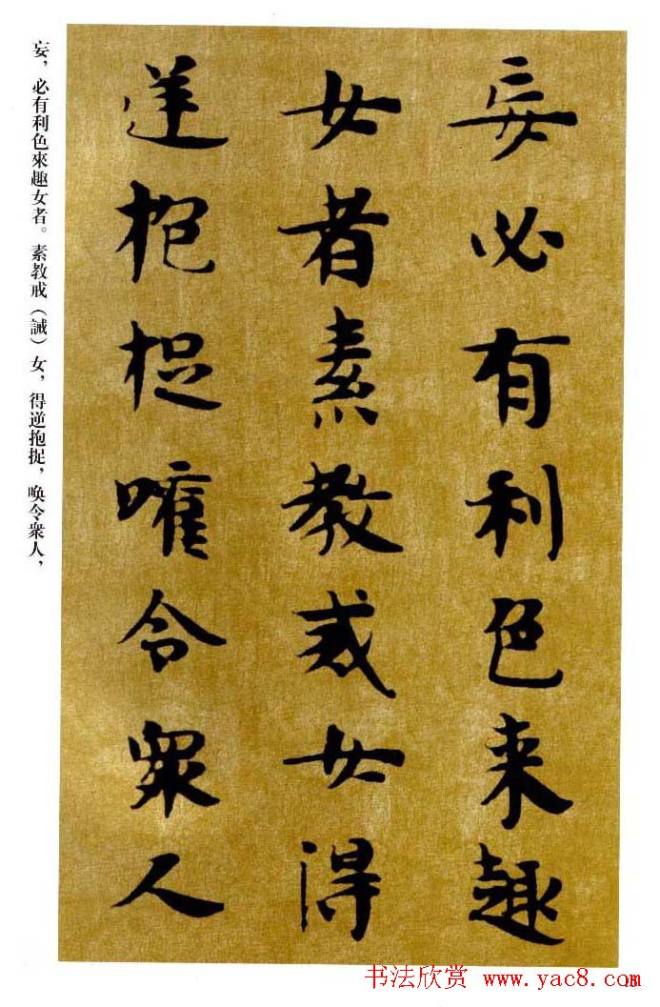 妄必有利色来趣
女者素教戒女得
逆抱捉嚾令衆人
妄，必有利色來趣女者。素教戒（誡）女，得逆抱捉，喚令衆人，
书法欣赏 www.yac8.com